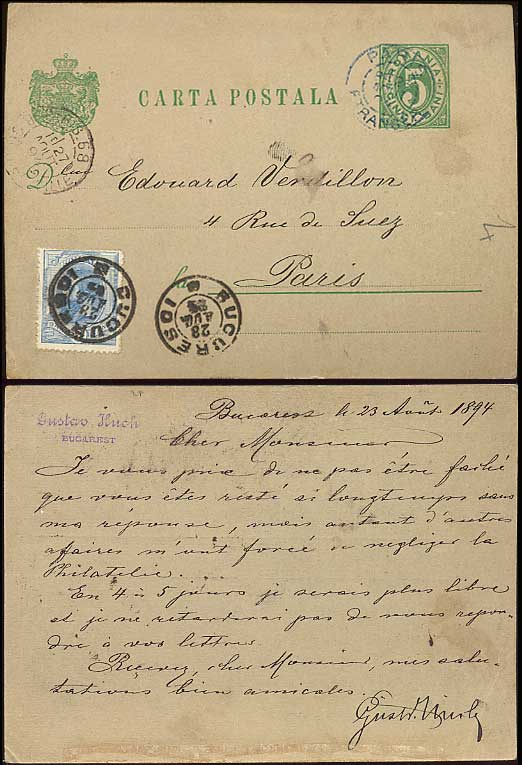 CARTA POSTALA
5
Dlui
Edouard Verdillon
4 Rue de Suez
la Paris
BUCURESCI
28
AUG
BUCURESCI
28
AUG
Gustav Huch
BUCAREST
Bucarest le 23 Août 1894
Cher Monsieur
Je vous prie de ne pas être faché
que vous êtes resté si longtemps sans
ma réponse, mais autant d'autres
afaires m'ont forcé a negliger la
Philatelie.
En 4 à 5 jours je serais plus libre
et je ne retarderai pas de vous repon-
dre à vos lettres.
Recevez, cher Monsieur, mes salu-
tations bien amicales.
Gust. Huch